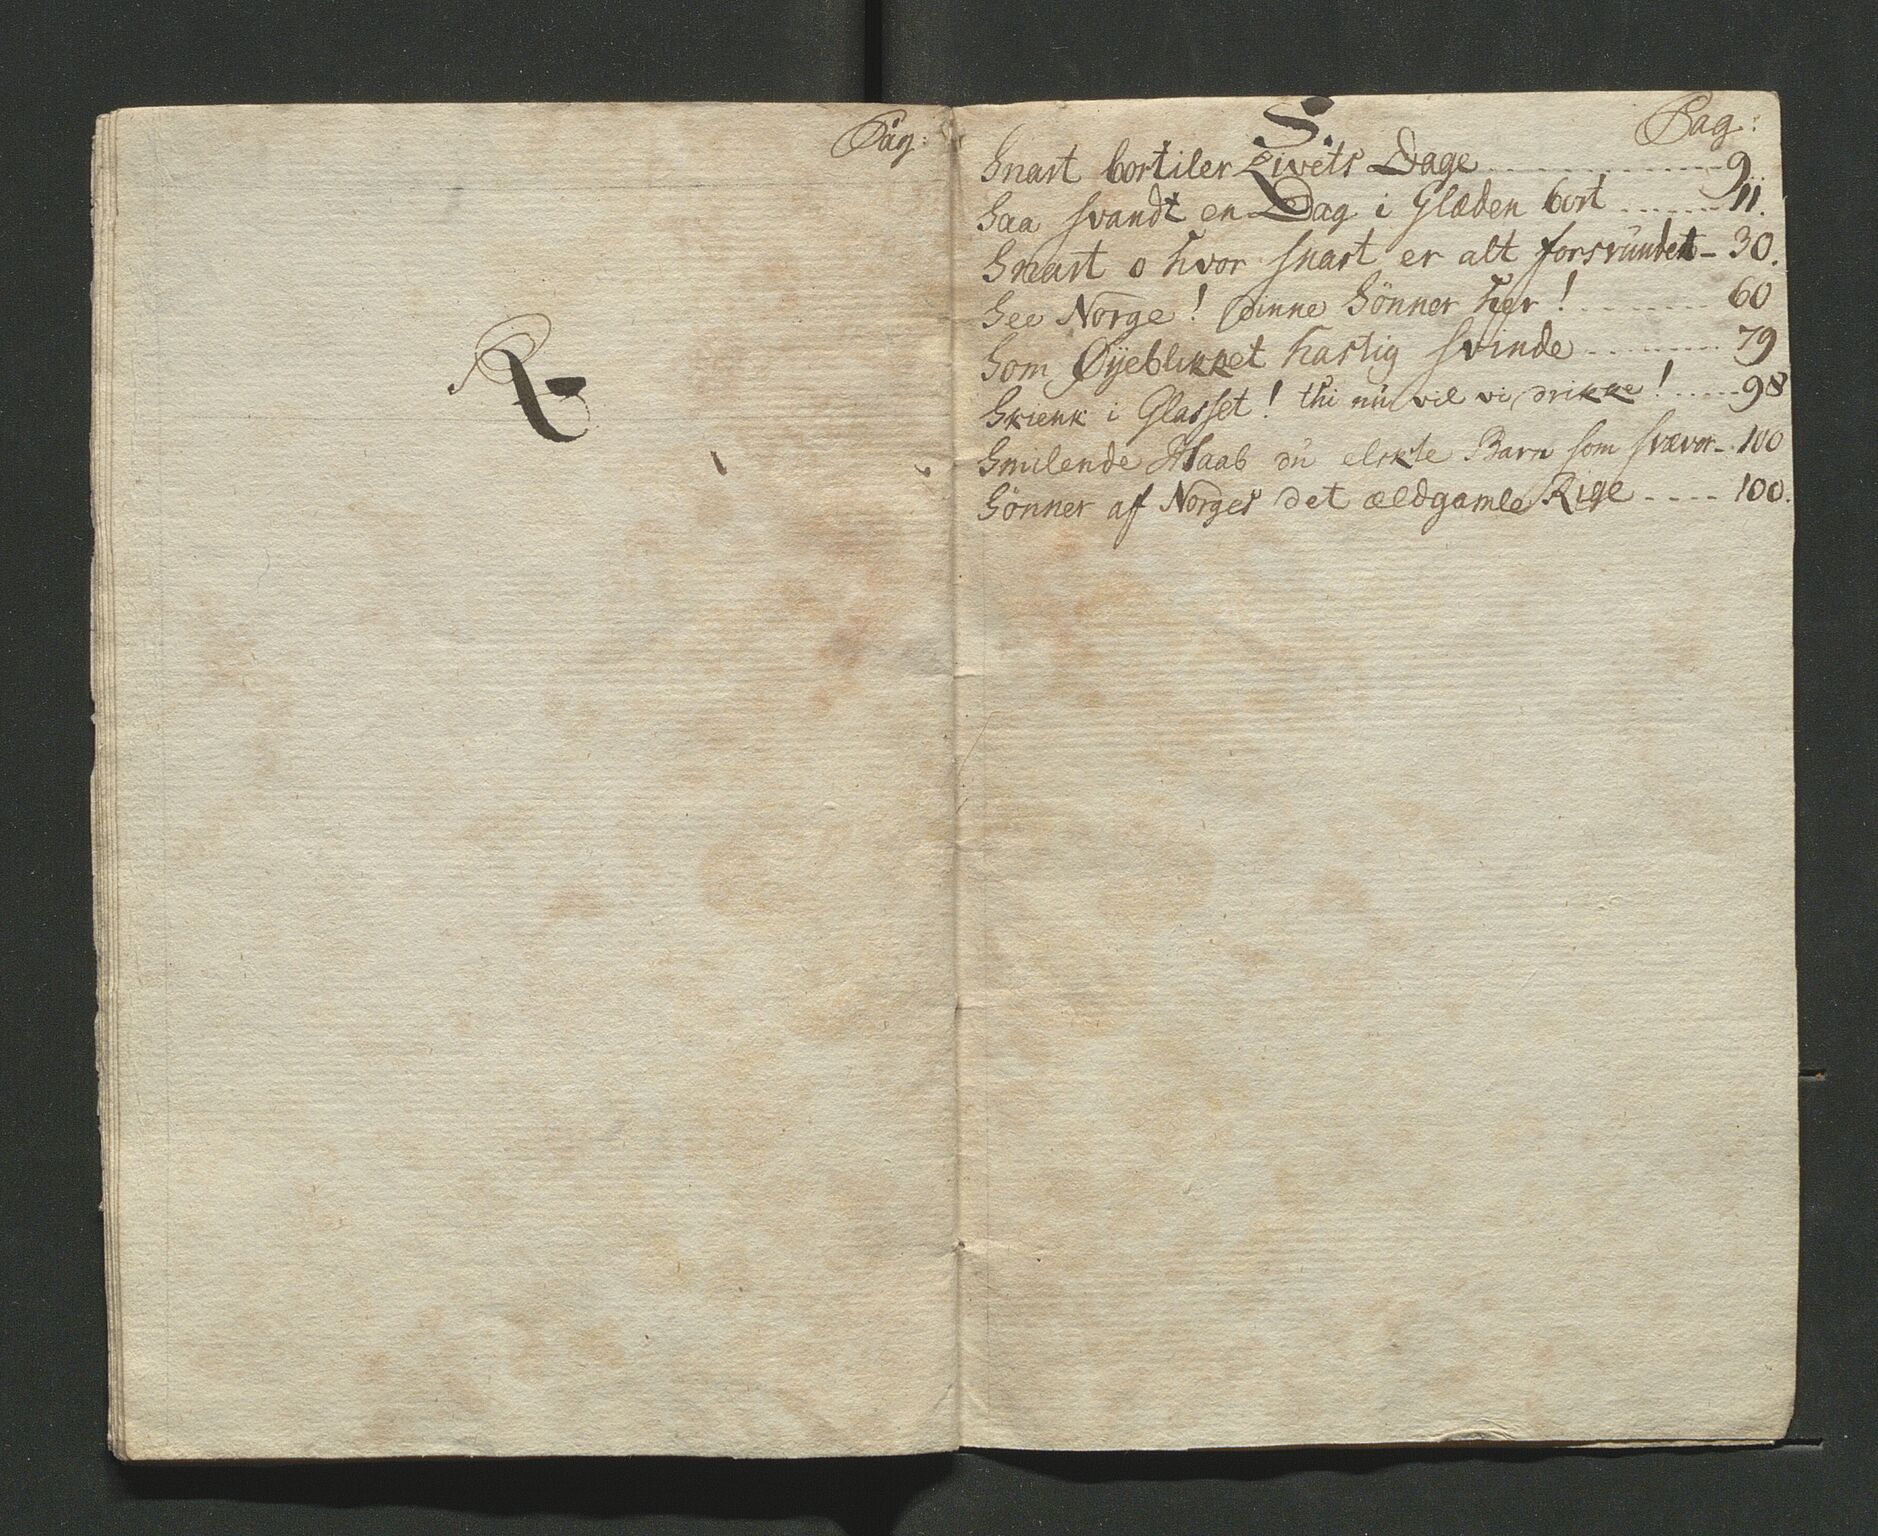 Pag:
R
S. Pag:
Snart bortiler Livets Dage ............ 9.
Saa svandt en Dag i Glæden bort ....... 11.
Snart o hvor snart er alt forsvundet - 30.
See Norge! dinne Sönner her! ........ 60
Som Øyeblikket hastig svinde ........ 79
Skienk i Glasset! thi nu vil vi drikke! ..... 98
Smilende Haab du elskte Barn som svæver - 100
Sönner af Norges det ældgamle Rige ---- 100.